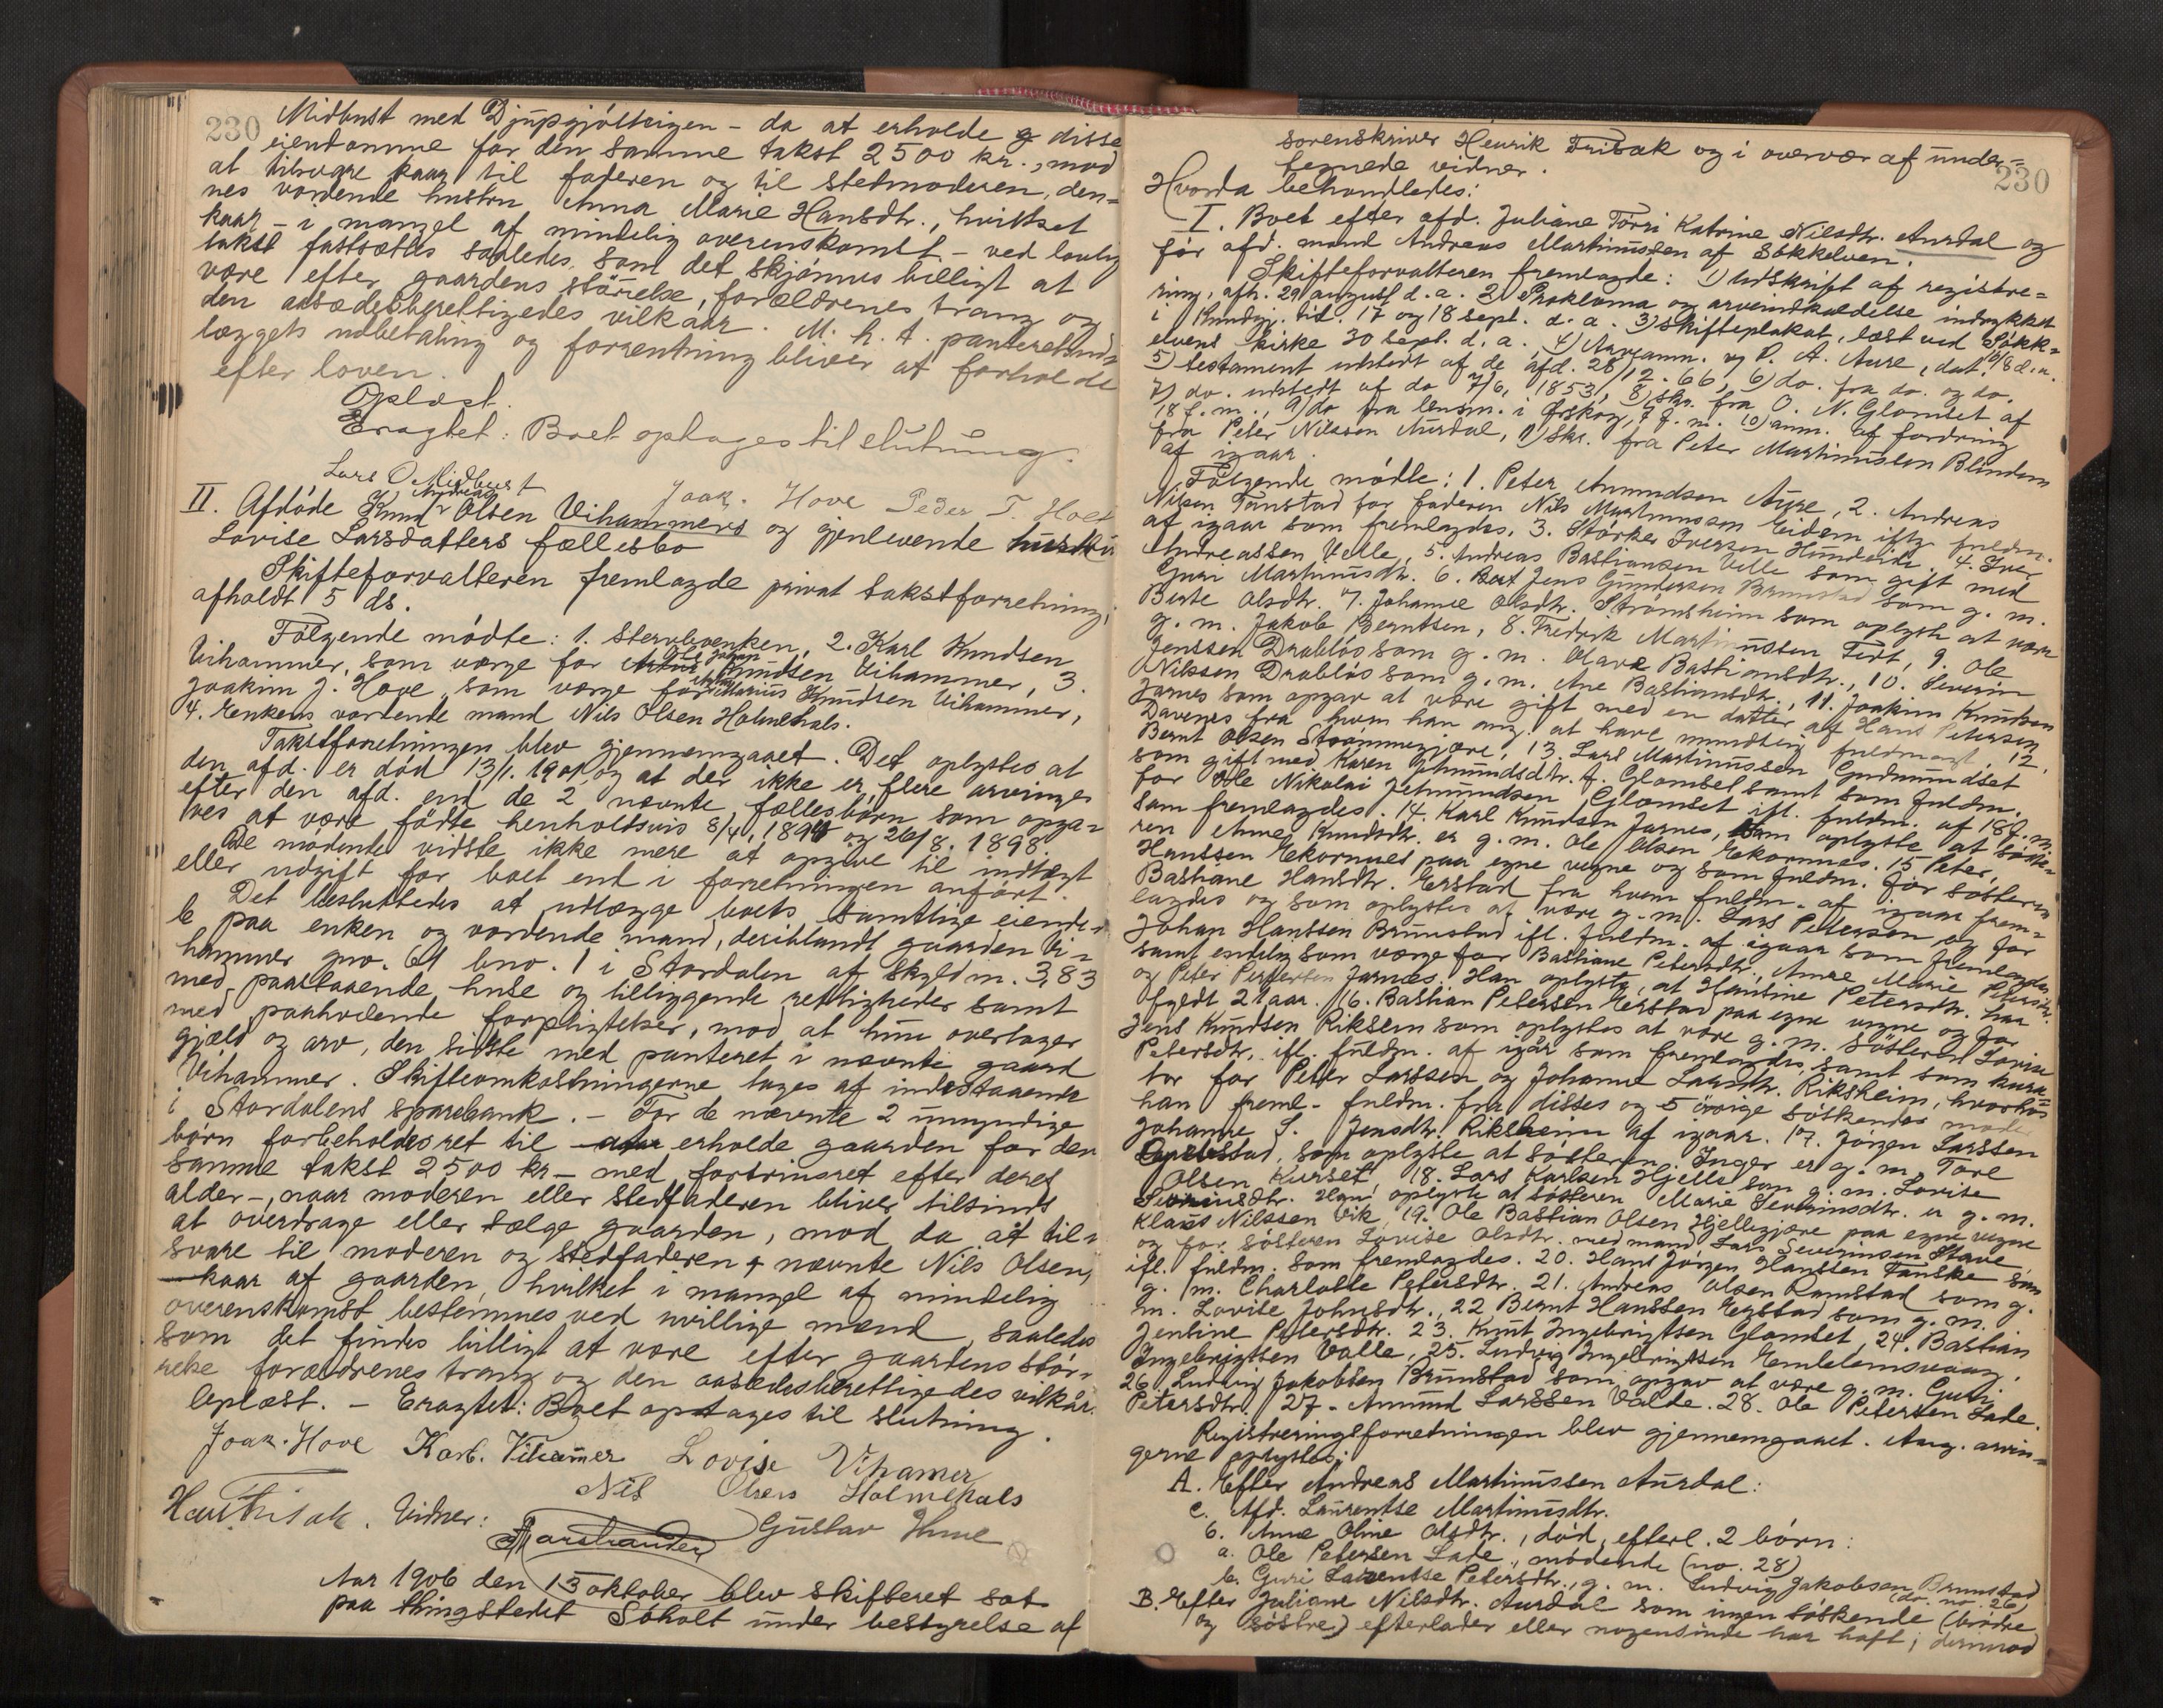 230
Midbust med Djupgjølteigen - da at erholde disse
eiendomme for den samme takst 2500 kr., mod
at tilsvare kaar til faderen og til stedmoderen, den-
nes vordende hustru Anna Marie Hansdtr., hvilket
kaar - i mangel af mindelig overenskomst - ved lovlig
takst fastsættes saaledes, som det skjønnes billigt at
være efter gaardens størrelse, forældrenes trang og
den aasædesberettigedes vilkaar. M. h. t. panterettind-
læggets udbetaling og forrentning bliver at forholde
efter loven.
Oplæst.
Eragtet: Boet optages til slutning.
Lars O Midbust Joak. Hove Peder T. Hove
II. Afdøde Knud Andreas Olsen Vihammers og gjenlevende hustru
Lovise Larsdatters fællesbo
Skifteforvalteren fremlagde privat takstforretning,
afholdt 5 ds.
Følgende mødte: 1. Stervboenken, 2. Karl Knudsen
Vihammer, som værge for Ole Johan Knudsen Vihammer, 3.
Joakim J. Hove som værge for Marius Knudsen Vihammer,
4. Enkens vordende mand Nils Olsen Holmehals.
Takstforretningen blev gjennemgaaet. Det oplystes at
den afd. er død 13/1. 1901 og at der ikke er flere arvinger
efter den afd. end de 2 nævnte fællesbørn som opga-
ves at være fødte henholdsvis 8/4. 1894 og 26/8. 1898.
De mødende vidste ikke mere at opgive til indtægt
eller udgift for boet end i forretningen anført.
Det besluttedes at udlægge boets samtlige eiende-
le paa enken og vordende mand, deriblandt gaarden Vi-
hammer gno. 61 bno. 1 i Stordalen af skyld m. 3,83
med paastaaende huse og tilliggende rettigheder samt
med paahvilende forpligtelser, mod at hun overtager
gjæld og arv, den sidste med panteret i nævnte gaard
Vihammer. Skifteomkostningerne tages af indestaaende
i Stordalens sparebank. - For de nævnte 2 umyndige
børn forbeholdes ret til at erholde gaarden for den
samme takst 2500 kr - med fortrinsret efter deres
alder -, naar moderen eller stedfaderen bliver tilsinds
at overdrage eller sælge gaarden, mod da at til-
svare til moderen og stedfaderen, nævnte Nils Olsen,
kaar af gaarden, hvilket i mangel af mindelig
overenskomst bestemmes ved uvillige mænd, saaledes
som det findes billigt at være efter gaardens stør-
relse forældrenes trang og den aasædesberettigedes vilkår.
Oplæst. - Eragtet: Boet optages til slutning.
Joak. Hove Karl. Vihamer Lovise Vihamer
Nils Olsen Holmehals
Vidner: Gustav
Aar 1906 den 13 oktober blev skifteret sat
paa thingstedet Søholt under bestyrelse af
230
sorenskriver Henrik Frisak og i overvær af under-
tegnede vidner.
Hvorda behandledes:
I. Boet efter afd. Juliane Tørri Katrine Nilsdtr. Aursdal og
før afd. mand Andreas Martinussen af Søkkelven.
Skifteforvalteren fremlagde: 1) Udskrift af registre-
ring, afh. 29 august d. a. 2) Proklama og arveindkaldelse indrykket
i Kundgj. tid. 17 og 18 sept. d. a. 3) Skifteplakat, læst ved Søkk-
elvens kirke 30 sept. d. a. 4) Arveanm. og P. A. Aure, dat. 10/8 d. a.
5) Testament udstedt af de afd. 28/12. 66, 6) do. fra do. og do.
7) do. udstedt af do 7/6, 1853, 8) Skr. fra O. N. Glomset af
18 f. m., 9) do fra lensm. i Ørskog, 7 f. m. 10) anm. af fordring
fra Peter Nilssen Aursdal, 11) Skr. fra Peter Martinussen Blindem
af igaar.
Følgende mødte: 1. Peter Amundsen Aure, 2. Andreas
Nilsen Tanstad for faderen Nils Martinussen Eidem iflg fuldm.
af igaar som fremlagdes, 3. Størker Iversen Hundeide. 4. Iver
Andreassen Velle, 5. Andreas Bastiansen Velle som gift med
Guri Martinusdtr. 6. Jens Gundersen Brunstad som g. m.
Berte Olsdtr. 7. Johanne Olsdtr. Strømsheim som oplyste at være
g. m. Jakob Berntsen, 8. Fredrik Martinussen Tert, 9. Ole
Jenssen Drabløs som g. m. Olave Bastiansdtr., 10. Severin
Nilssen Drabløs som g. m. Ane Bastiansdtr., 11. Joakim Knudsen
Jarnes som opgav at være gift med en datter af Hans Petersen
Davenes fra hvem han ang. at have mundtlig fuldmagt. 12.
Bernt Olsen Strømmegjære, 13. Lars Martinussen Gudmundset
som gift med Karen Jetmundsdtr. f. Glomset samt som fuldm.
for Ole Nikolai Jetmundsen Glomset ifl. fuldm. af 18 f. m.
som fremlagdes. 14. Karl Knudsen Jarnes, som oplyste at søste-
ren Anne Knudsdtr. er g. m. Ole Olsen Ekornnes. 15 Peter
Hanssen Ekornnes paa egne vegne og som fuldm. for søsteren
Bastiane Hansdtr. Erstad fra hvem fuldm. af igaar frem-
lagdes og som oplystes at være g. m. Lars Petersen og for
Johan Hanssen Brunstad ifl. fuldm. af igaar som fremlagdes
samt endelig som værge for Bastiane Petersdtr., Anne Marie Petersdtr.
og Peter Petersen Jarnes. Han oplyste, at Hansine Petersdtr. har
fyldt 21 aar. 16. Bastian Petersen Erstad paa egne vegne og for
Jens Knudsen Riksem som oplystes at være g. m. søsteren Lovise
Petersdtr. ifl. fuldm. af igår som fremlagdes, samt som kura-
tor for Peter Larssen og Johanne Larsdtr. Riksheim, hvorhos
han freml. fuldm. fra disses og 5 øvrige søskendes moder
Johanne S. Jensdtr. Riksheim af igaar. 17. Jørgen Larssen
som oplyste at søsteren Inger er g. m. Tore
Olsen Kurset, 18. Lars Karlsen Hjelle som g. m. Lovise
Severinsdtr. Han oplyste at søsteren Marie Severinsdtr. er g. m.
Klaus Nilssen Vik, 19. Ole Bastian Olsen Hjellegjære paa egne vegne
og for søsteren Lovise Olsdtr. med mand Lars Severinsen Stave
ifl. fuldm. som fremlagdes. 20. Hans Jørgen Hanssen Tanske som
g. m. Charlotte Petersdtr. 21. Andreas Olsen Ramstad som g.
m. Lovise Johnsdtr., 22 Bernt Hanssen Erstad som g. m.
Jentine Petersdtr. 23. Knut Ingebrigtsen Glomset, 24. Bastian
Ingebrigtsen Valle, 25. Ludvig Ingebrigtsen Emblemsvaag,
26. Ludvig Jakobsen Brunstad som opgav at være g. m. Guri
Petersdtr. 27. Amund Larssen Valde. 28. Ole Petersen Lade.
Registreringsforretningen blev gjennemgaaet. Ang. arvin-
gerne oplystes:
A. Efter Andreas Martinussen Aursdal:
c. Afd. Laurentse Martinusdtr.
6. Ane Oline Olsdtr., død, efterl. 2 børn:
a. Ole Petersen Lade, mødende (no. 28)
b. Guri Laurentse Petersdtr., g. m. Ludvig Jakobsen Brunstad
(do. no. 26)
B. Efter Juliane Nilsdtr. Aursdal som ingen søskende (brødre
og søstre) efterlader eller nogensinde har haft; derimod